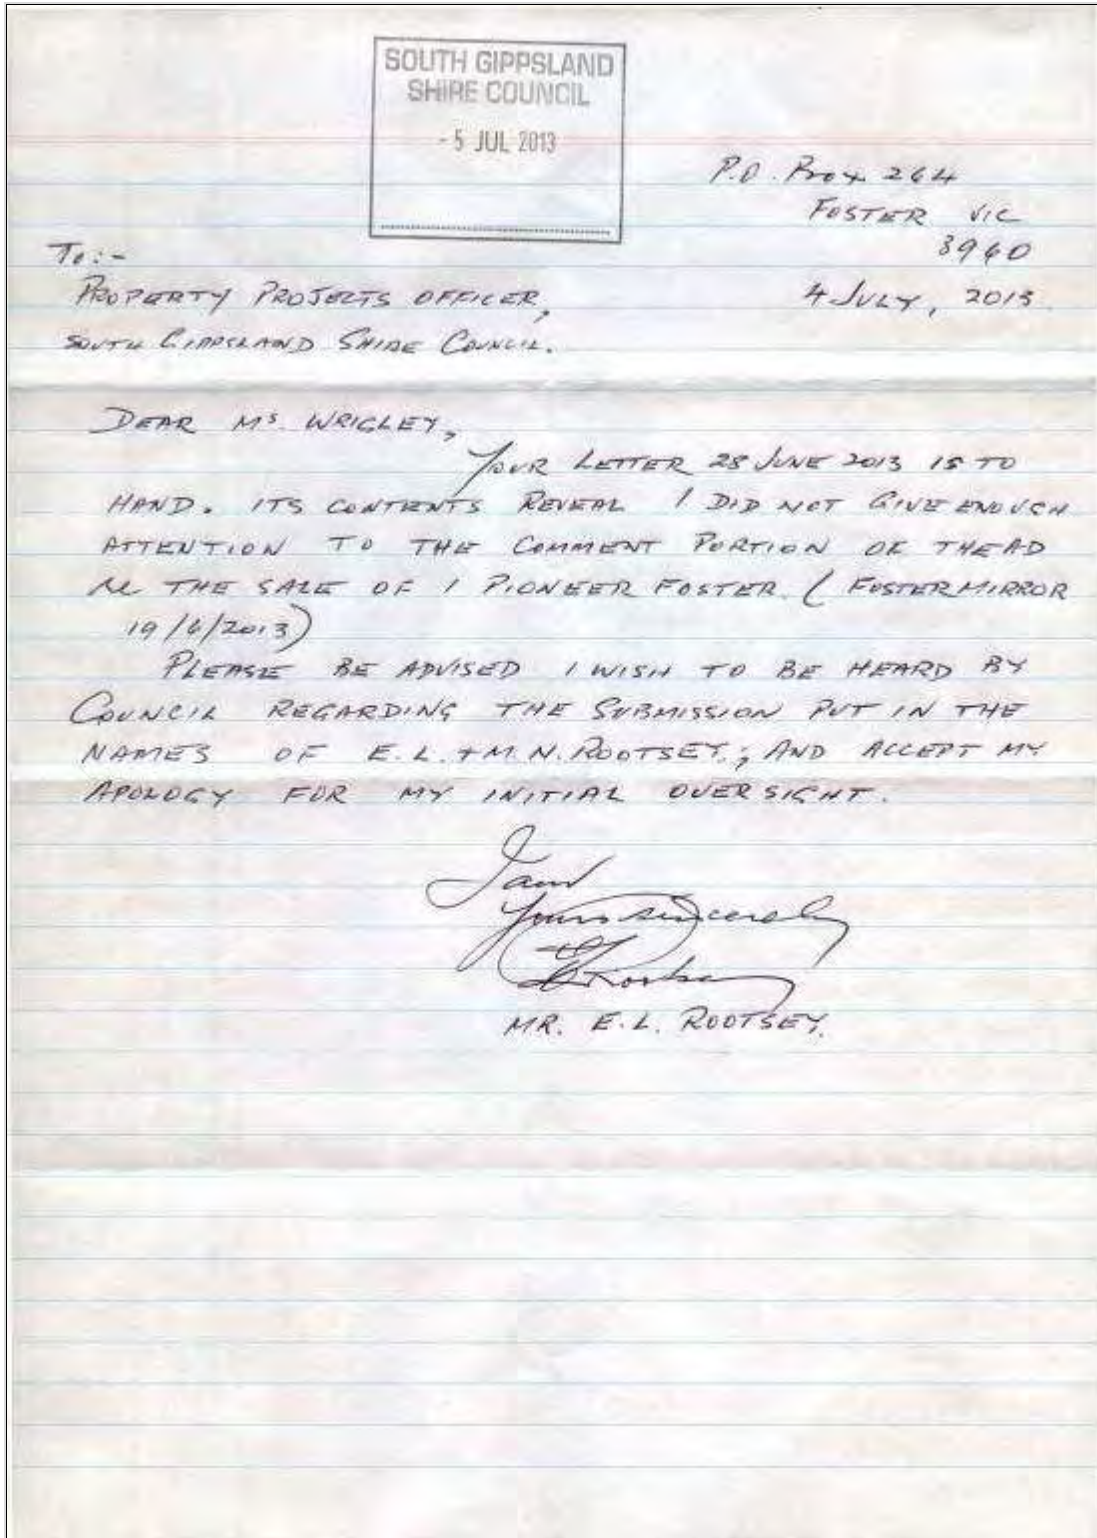 SOUTH GIPPSLAND
SHIRE COUNCIL
- 5 JUL 2013
P.O. Box 264
FOSTER VIC
3960
To:-
PROPERTY PROJECTS OFFICER,
4 JULY, 2013.
SOUTH GIPPSLAND SHIRE COUNCIL.
DEAR MS. WRIGLEY,
YOUR LETTER 28 JUNE 2013 IS TO
HAND. ITS CONTENTS REVEAL I DID NOT GIVE ENOUGH
ATTENTION TO THE COMMENT PORTION OF THE AD
re THE SALE OF 1 PIONEER FOSTER. (FOSTER MIRROR
19/6/2013)
PLEASE BE ADVISED I WISH TO BE HEARD BY
COUNCIL REGARDING THE SUBMISSION PUT IN THE
NAMES OF E.L. + M.N. ROOTSEY.; AND ACCEPT MY
APOLOGY FOR MY INITIAL OVERSIGHT.
I am
Yours sincerely
E L Rootsey
MR. E.L. ROOTSEY.